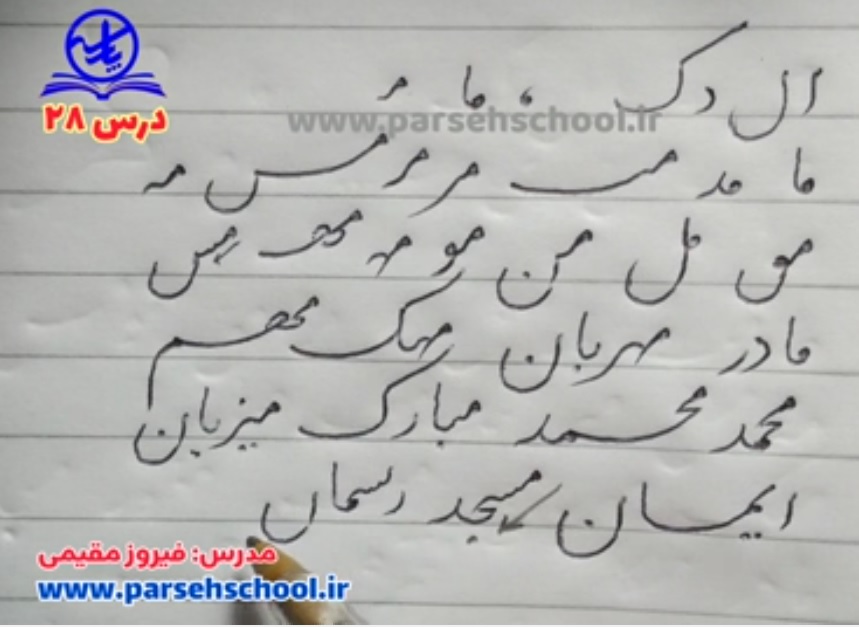 درس ۲۸
ال دک ، ما مر
www.parsehschool.ir
ما مد مب مر مر مس مه
مو مل من مو مهر
مادر مهربان مهک
محمد محمد مبارک میزبان
ایمان مسجد رسمان
مدرس: فیروز مقیمی
www.parsehschool.ir